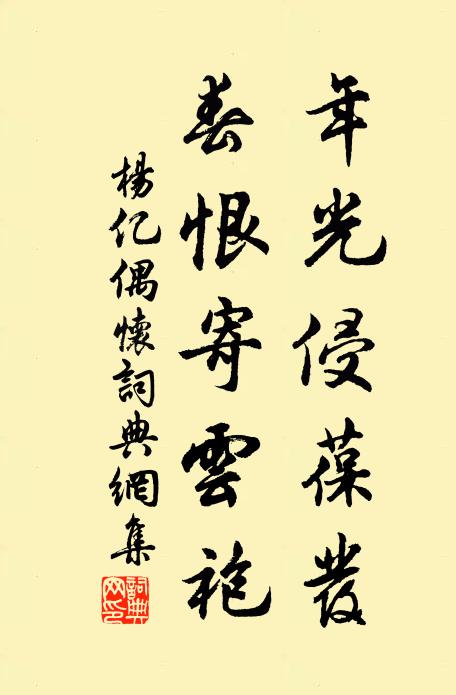 年光侵葆發
春恨寄雲袍
楊亿偶懷詞典網集
詞典网印